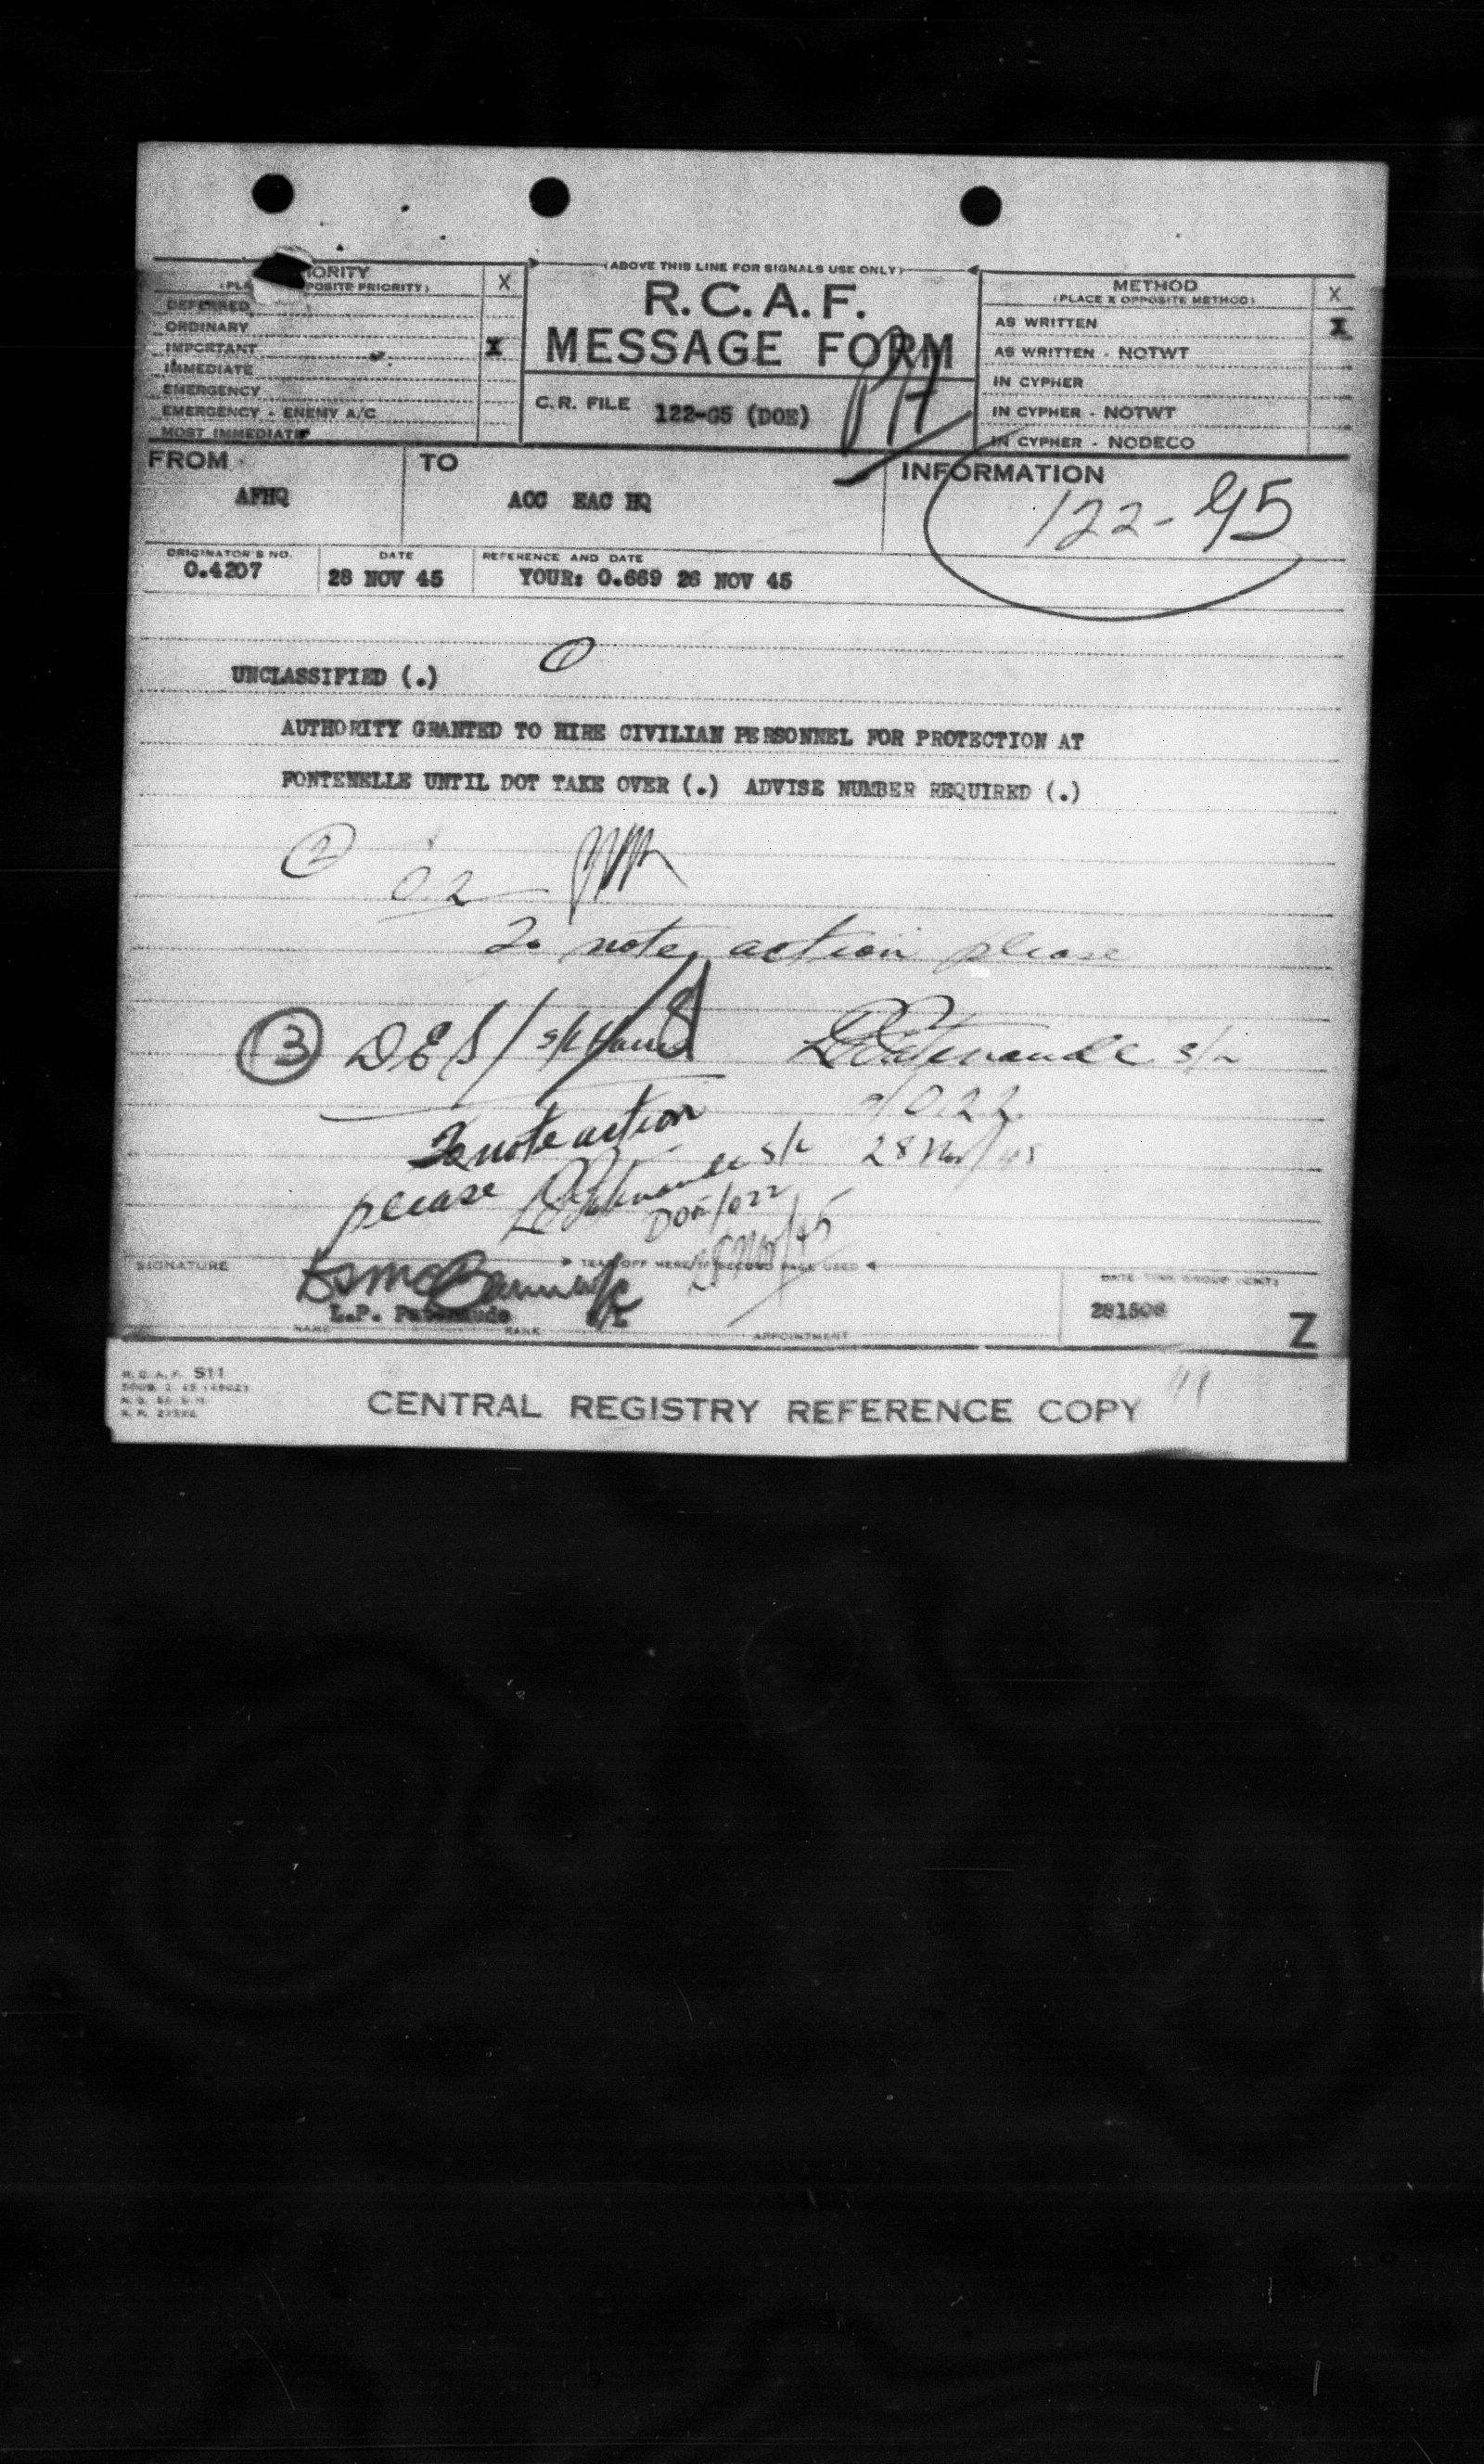 (ABOVE THIS LINE FOR SIGNALS USE ONLY)
IORITY X
(PLA POSITE PRIORITY)
DEFERRED
ORDINARY
IMPORTANT X
IMMEDIATE
EMERGENCY
EMERGENCY - ENEMY A/C
MOST IMMEDIATE
R.C.A.F.
MESSAGE FORM
C.R. FILE 122-G5 (DOE)
METHOD X
(PLACE X OPPOSITE METHOD)
AS WRITTEN X
AS WRITTEN - NOTWT
IN CYPHER
IN CYPHER - NOTWT
IN CYPHER - NODECO
FROM
AFHQ
TO
AOC EAC HQ
INFORMATION
122-G5
ORIGINATOR'S NO.
O.4207
DATE
28 NOV 45
REFERENCE AND DATE
YOUR: O.669 26 NOV 45
1
UNCLASSIFIED (.)
AUTHORITY GRANTED TO HIRE CIVILIAN PERSONNEL FOR PROTECTION AT
FONTENELLE UNTIL DOT TAKE OVER (.) ADVISE NUMBER REQUIRED (.)
2
0.2
To note, action please
3 DES/
LPPatenaude S/L
28 Nov/45
To note action
please LPPatenaude S/L
DOE/022
28 Nov/45
TEAR OFF HERE IF SECOND PAGE USED
SIGNATURE
L.P. Patenaude
S/L
NAME RANK APPOINTMENT
DATE-TIME GROUP (GMT)
281508 Z
R.C.A.F. S11
CENTRAL REGISTRY REFERENCE COPY